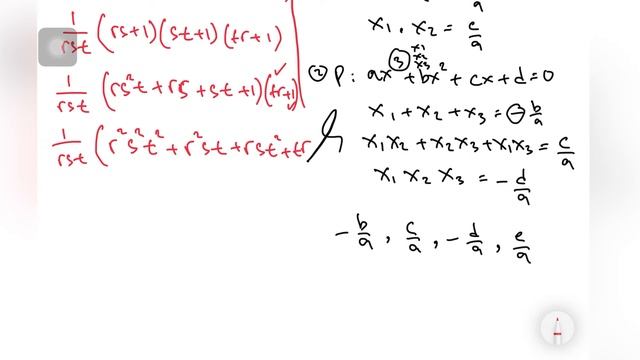 1/rst (rs+1)(st+1)(tr+1)
1/rst (rs²t + rs + st + 1)(tr+1)
1/rst (r²s²t² + r²st + rst² + tr
a
x₁ . x₂ = c/a
x₁
x₂
x₃
② P: ax³ + bx² + cx + d = 0
x₁ + x₂ + x₃ = - b/a
x₁x₂ + x₂x₃ + x₁x₃ = c/a
x₁ x₂ x₃ = - d/a
- b/a , c/a , - d/a , e/a